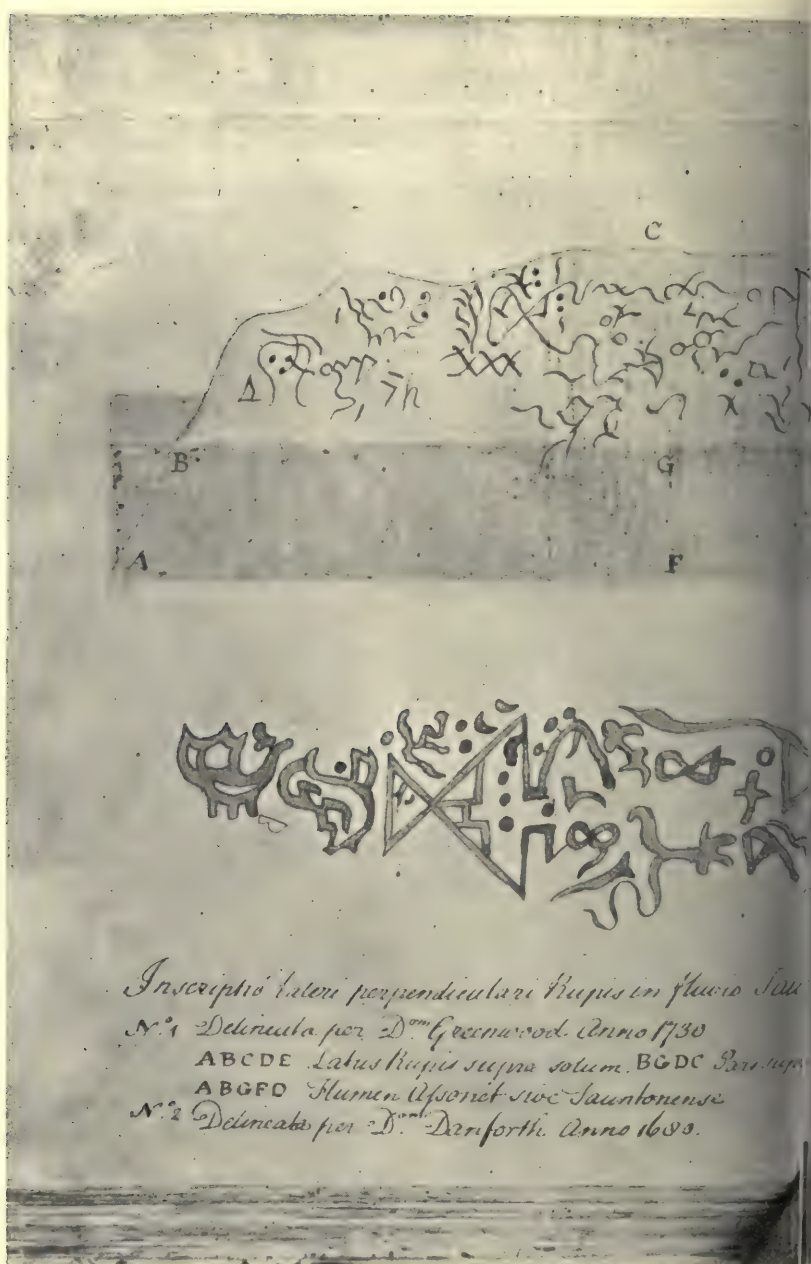 C
B G
A F
Inscriptio lateri perpendiculari Rupis in fluvio
No. 1 Delineata per Dom Greenwood Anno 1730
ABCDE Latus Rupis supra solum. BGDC Pars
ABGFD Flumen Assonet sive Tauntonense
No. 2 Delineata per Dom Danforth. Anno 1680.